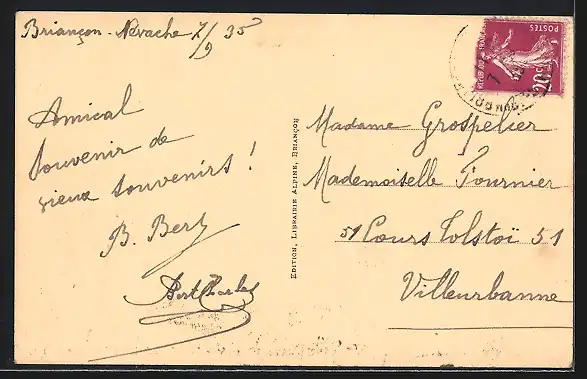 Briançon - Nevache 7/9 35
Amical
Souvenir de
vieux souvenirs !
B. Bert
Bert Charles
EDITION, LIBRAIRIE ALPINE, BRIANÇON
POSTES
20c
Madame Grospelier
Mademoiselle Fournier
51 Cours Tolstoï 51
Villeurbanne